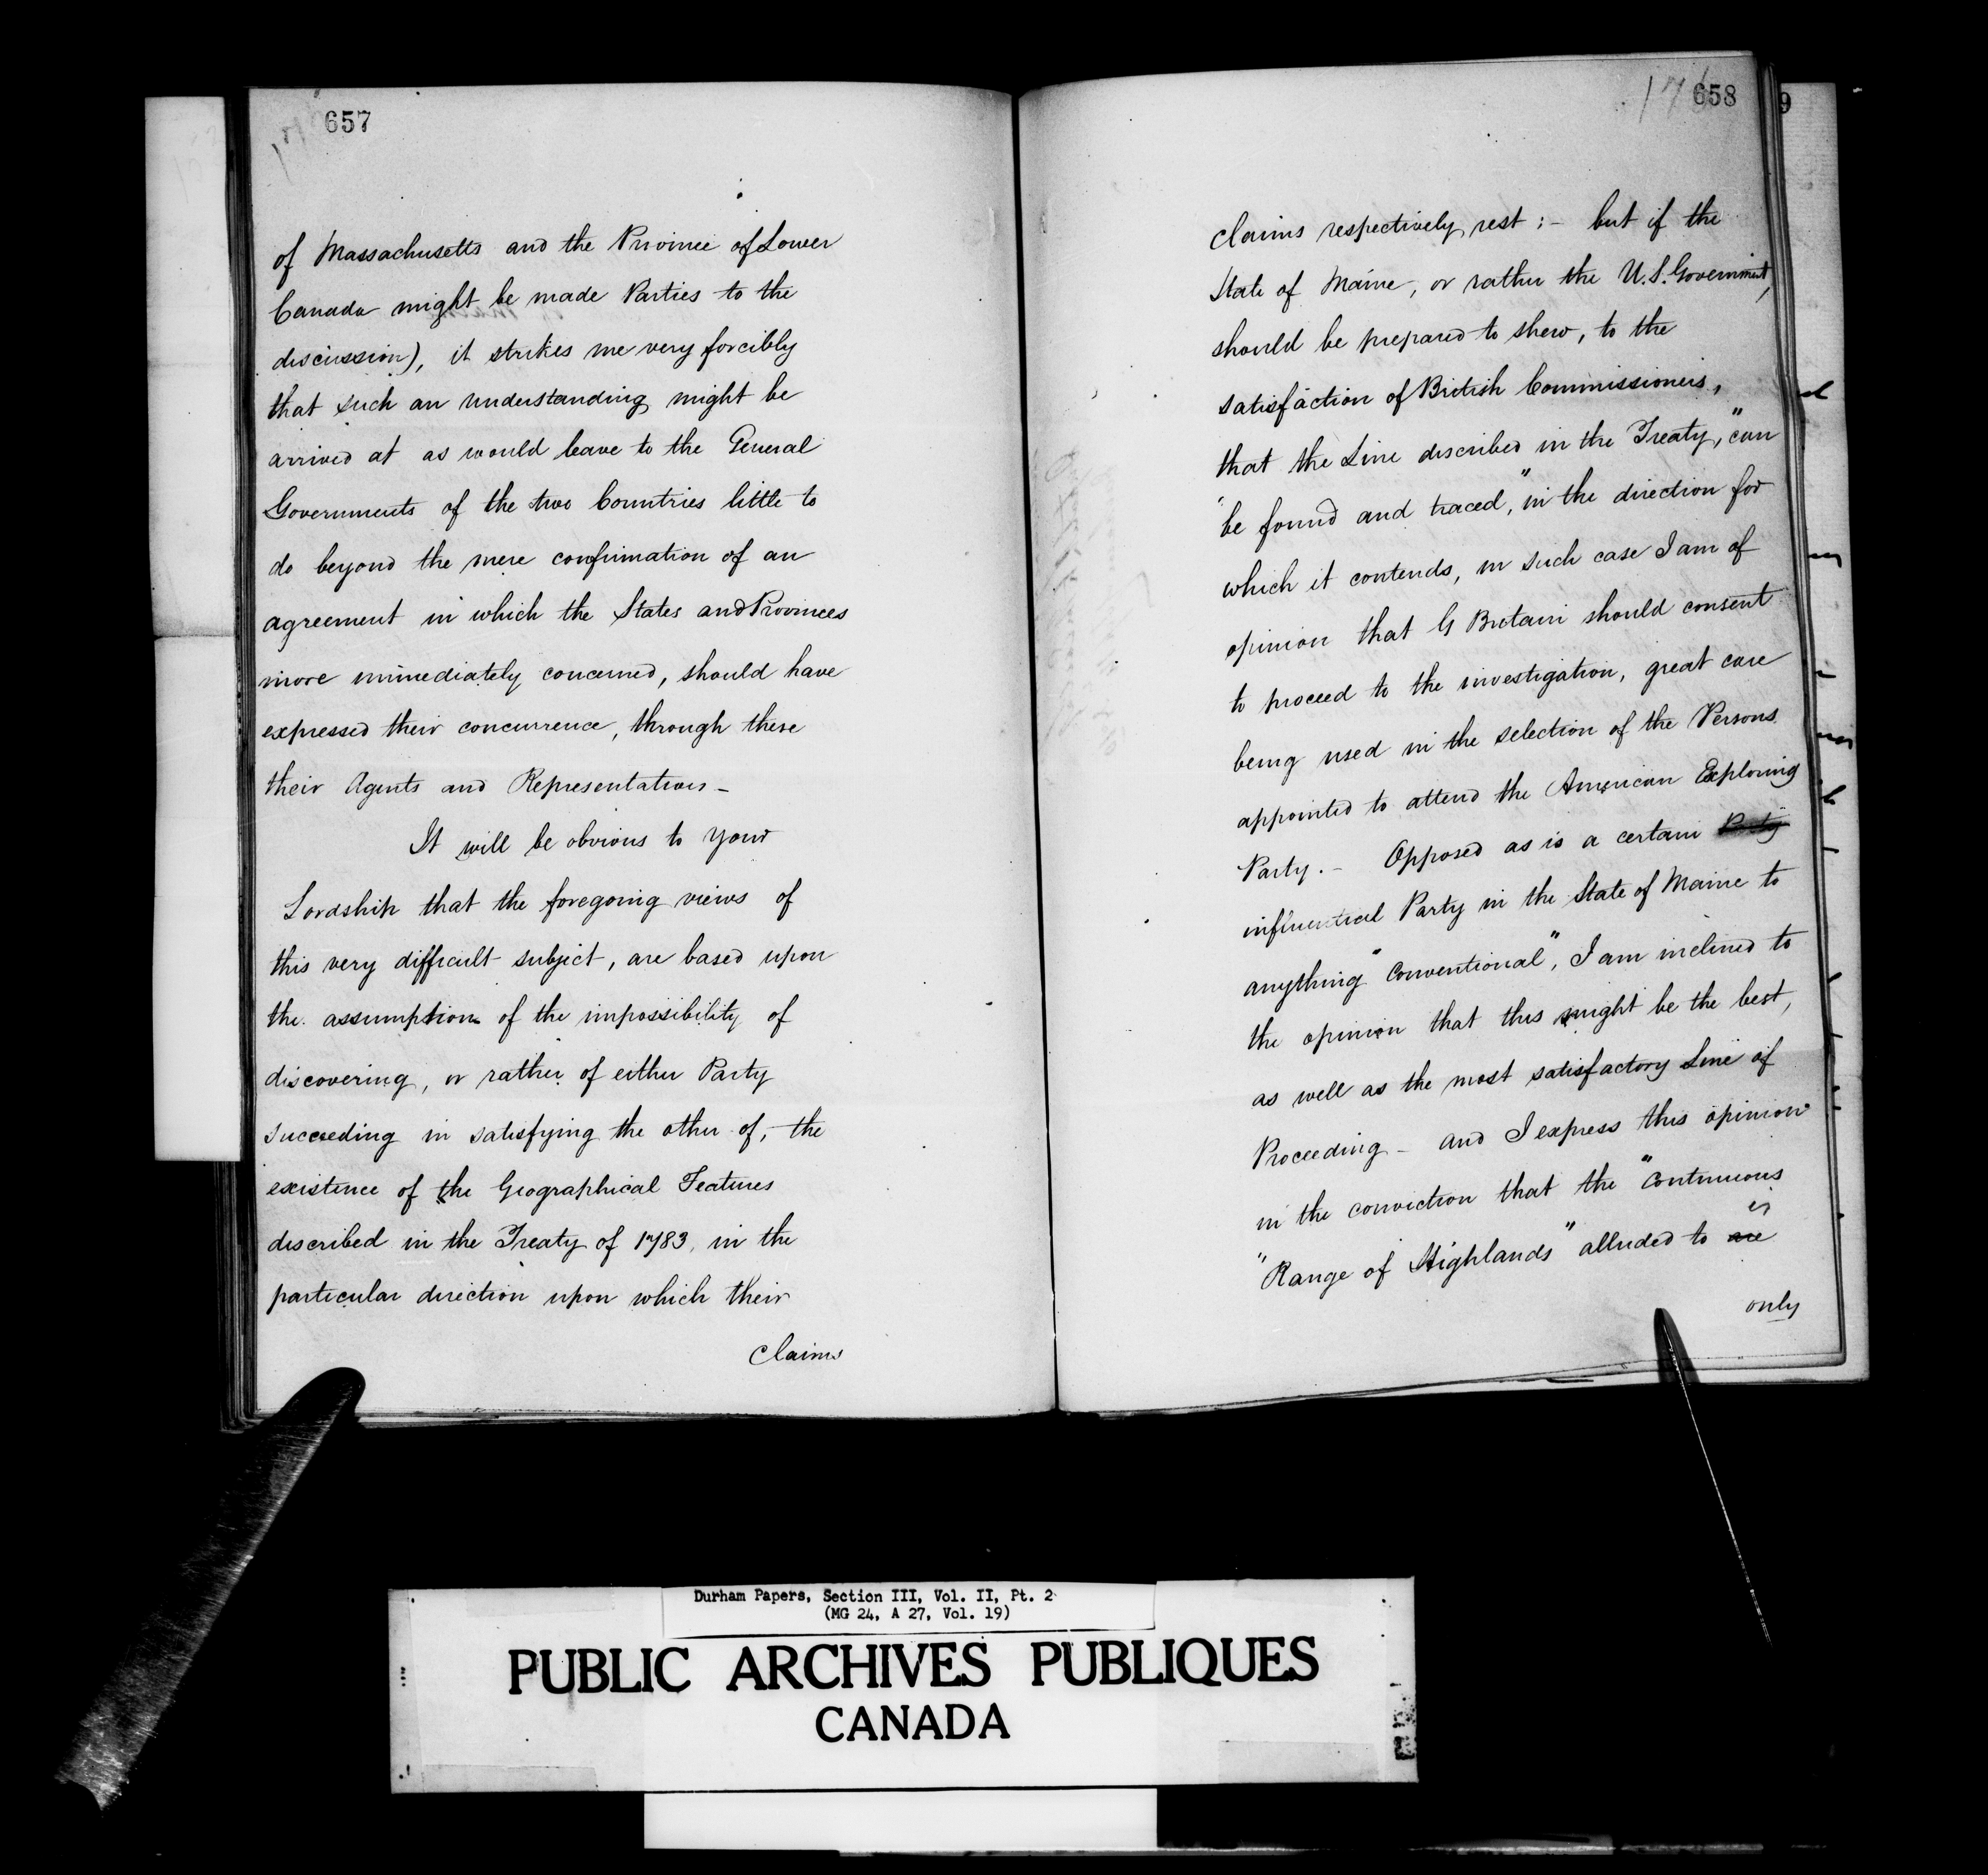 657
of Massachusetts and the Province of Lower
Canada might be made Parties to the
discussion), it strikes me very forcibly
that such an understanding might be
arrived at as would leave to the General
Governments of the two Countries little to
do beyond the mere confirmation of an
agreement in which the States and Provinces
more immediately concerned, should have
expressed their concurrence, through these
their Agents and Representatives -
It will be obvious to your
Lordship that the foregoing views of
this very difficult subject, are based upon
the assumption of the impossibility of
discovering, or rather of either Party
succeeding in satisfying the other of, - the
existence of the Geographical Features
described in the Treaty of 1783, in the
particular direction upon which their
claims
658
claims respectively rest: - but if the
State of Maine, or rather the U.S. Government,
should be prepared to shew, to the
satisfaction of British Commissioners,
that the Line described in the Treaty, "can
"be found and traced", in the direction for
which it contends, in such case I am of
opinion that G Britain should consent
to proceed to the investigation, great care
being used in the selection of the Persons
appointed to attend the American Exploring
Party. - Opposed as is a certain Party
influential Party in the State of Maine to
anything "conventional", I am inclined to
the opinion that this might be the best,
as well as the most satisfactory Line of
Proceeding - and I express this opinion
in the conviction that the "continuous
"Range of Highlands" alluded to are is
only
9
Durham Papers, Section III, Vol. II, Pt. 2
(MG 24, A 27, Vol. 19)
PUBLIC ARCHIVES PUBLIQUES
CANADA